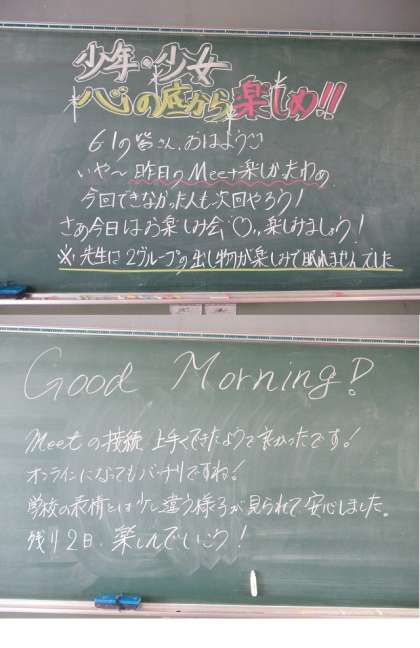 少年・少女
心の底から楽しめ!!
6-1の皆さん、おはよう
いや〜昨日のMeet楽しかったわぁ
今回できなかった人も次回やろう!
さあ今日はお楽しみ会♡、楽しみましょう!
※先生は2グループの出し物が楽しみで眠れませんでした
Good Morning!
Meetの接続、上手くできたようで良かったです!
オンラインになってもバッチリですね!
学校の表情とは少し違う様子が見られて安心しました。
残り2日、楽しんでいこう!